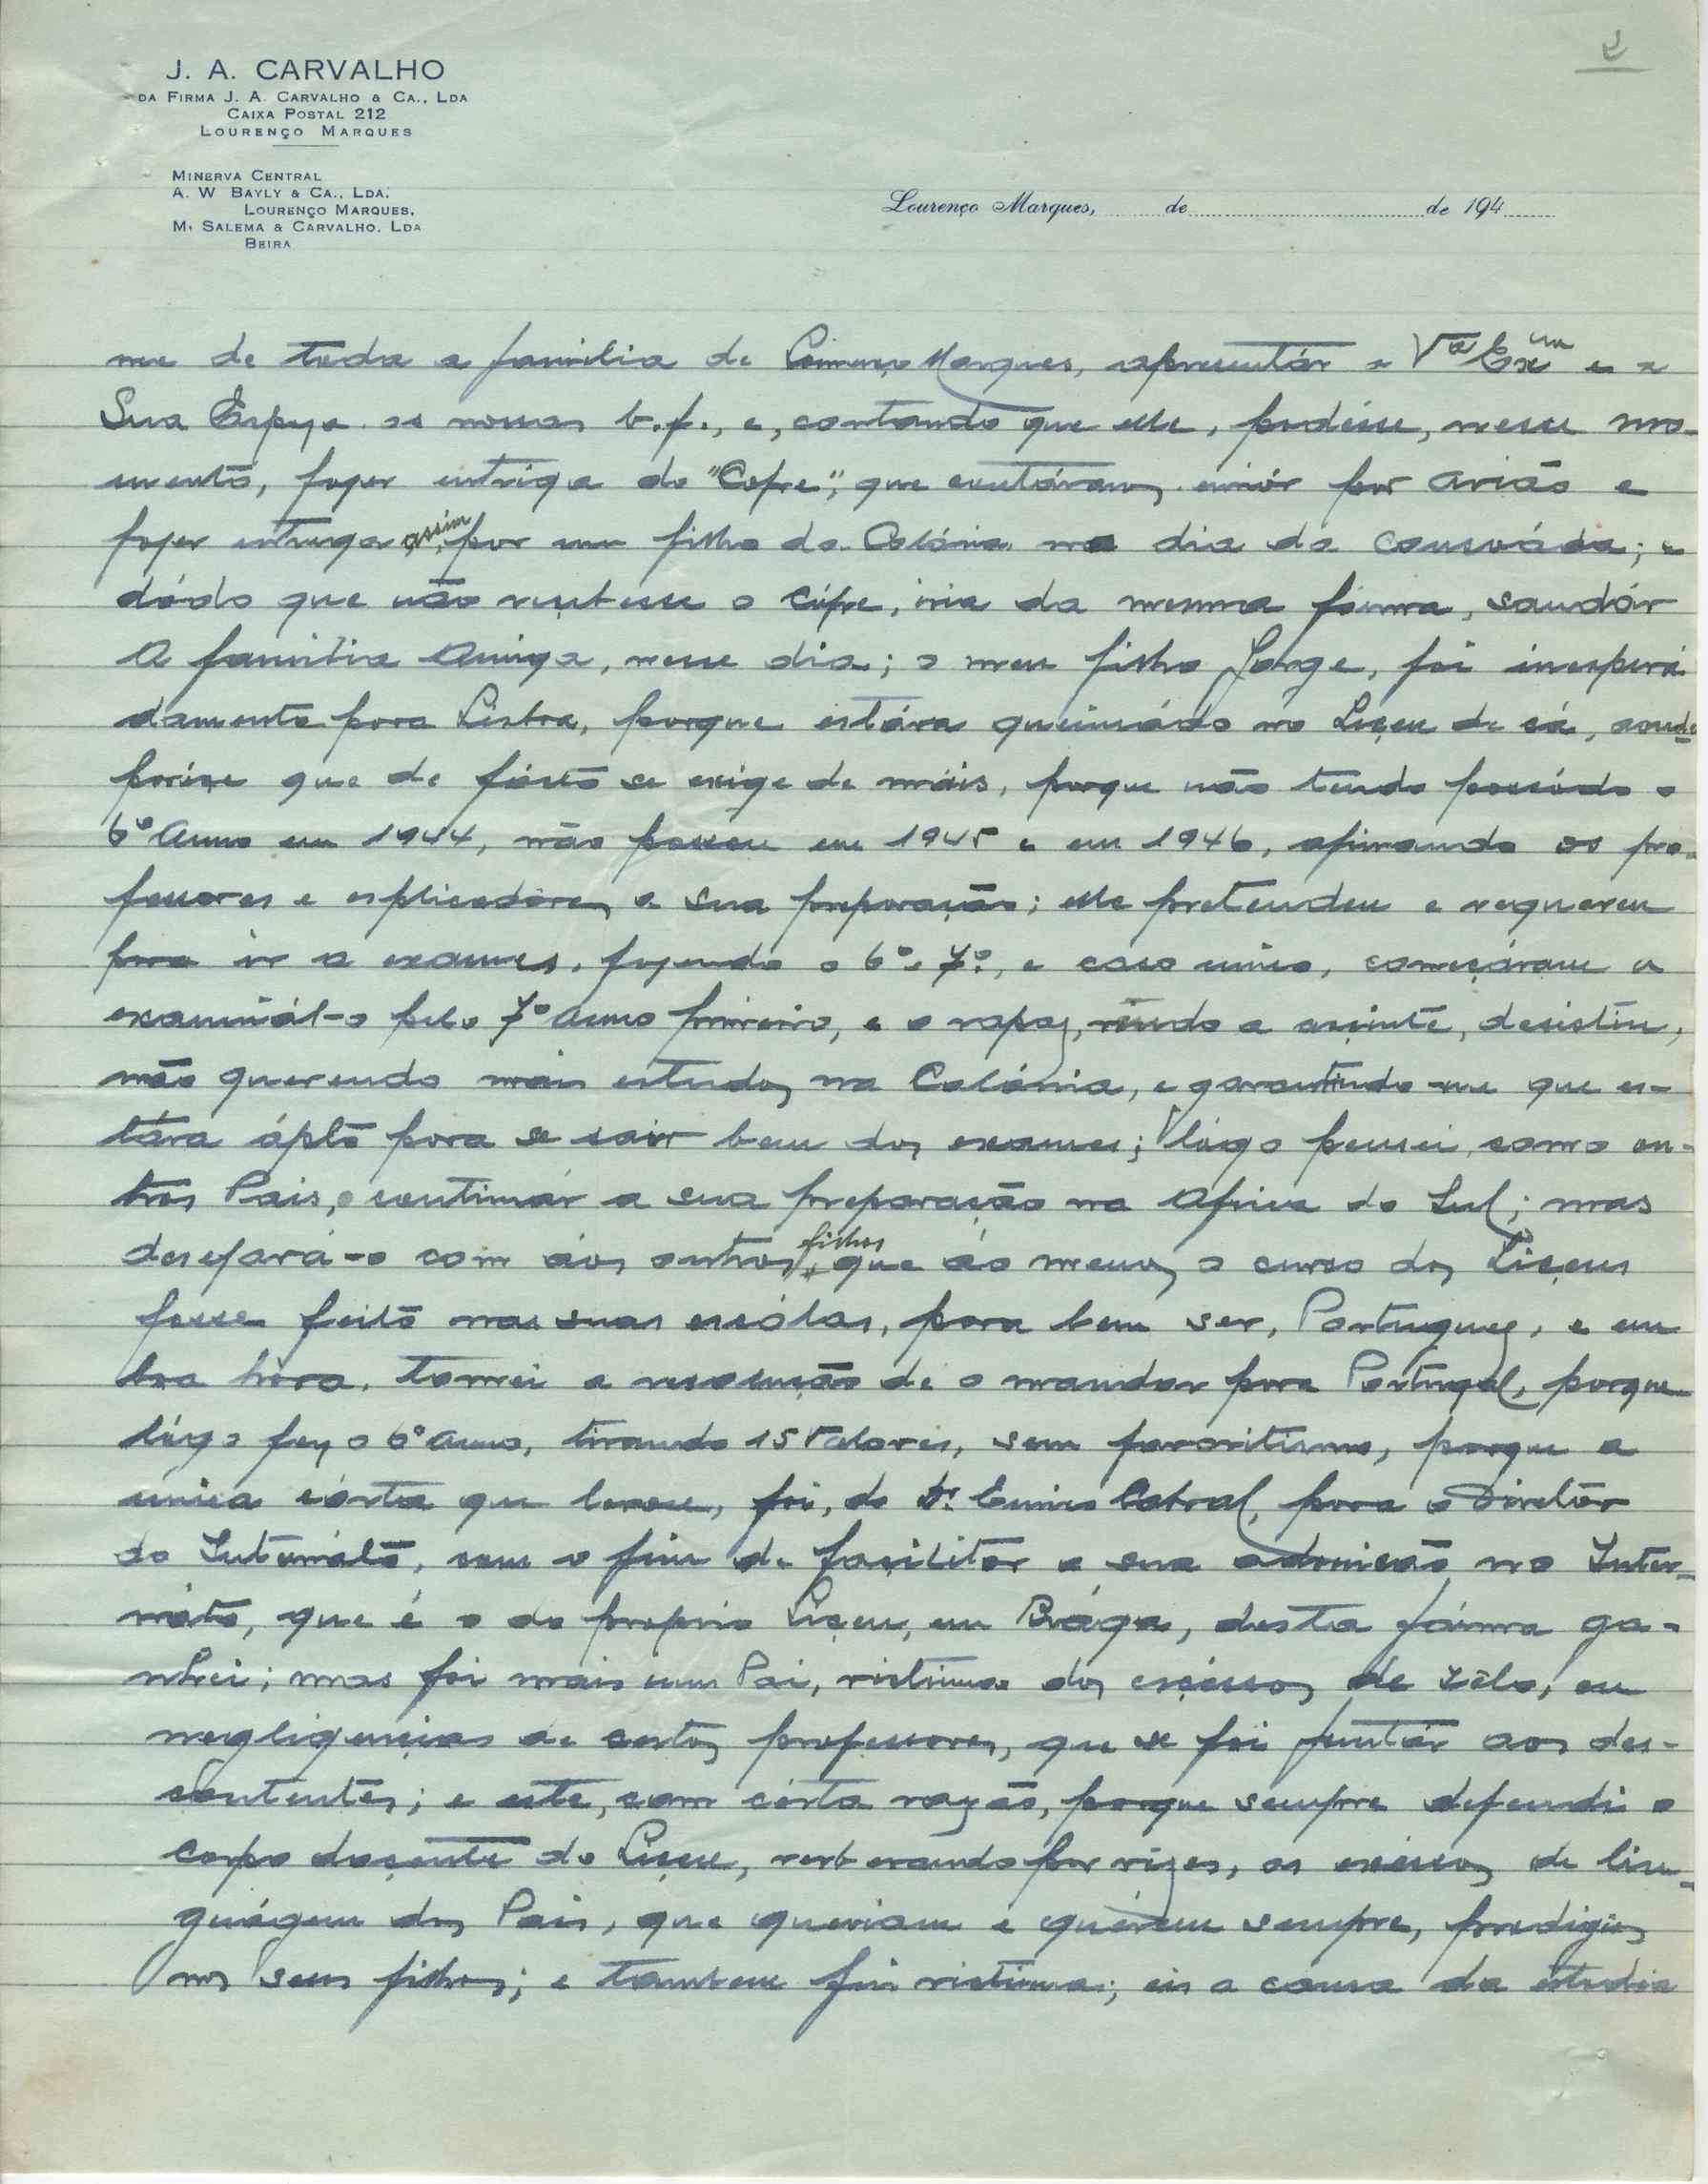 2
J. A. CARVALHO
DA FIRMA J. A. CARVALHO & CA., LDA
CAIXA POSTAL 212
LOURENÇO MARQUES
MINERVA CENTRAL
A. W BAYLY & CA., LDA.
LOURENÇO MARQUES.
M. SALEMA & CARVALHO, LDA
BEIRA
Lourenço Marques, de de 194
me de toda a familia de Lourenço Marques, apresentár a Vª Exª e a
Sua Espoza as nossas b.f., e, contando que elle, podésse, nesse mo-
mento, fazer entrega do "Cofre", que enviár por avião e
fazer entrega assim, por um filho da Colónia no dia da ; e
dádo que não recebesse o cófre, iria da mesma fórma, saudár
a familia Amiga, nesse dia; o meu filho Jorge, foi inesperá
damente para Lisboa, porque estáva queimádo no Liçeu de cá,
que de fácto se exige de máis, porque não tendo passádo o
6º Anno em 1944, não passou em 1945 e em 1946, afirmando os pro-
fessores e esplicadôres a sua preparação; elle pretendeu e requereu
para ir a exames, fazendo o 6º e 7º, e caso unico, começáram a
examinál-o pelo 7º Anno primeiro, e o rapaz, vendo a açinte, desistiu,
não querendo mais estudos na Colónia, e garantindo-me que es-
táva ápto para se sair bem dos exames; lógo pensei, como ou-
tros Pais, continuár a sua preparação na Africa do Sul; mas
desejava-o com áos outros filhos, que áo menos o curso dos Liçeus
fosse feito nas suas escólas, para bem ser, Portuguez, e em
boa hóra, tomei a resolução de o mandar para Portugal, porque
lógo fez o 6º Anno, tirando 15 Valores, sem favoritismo, porque a
unica cárta que levou, foi, do Dr. Cabral, para o Diretôr
do Internáto, com o fim de façilitar a sua admissão no Inter-
náto, que é o do proprio Liçeu, em Brága, desta fórma ga-
nhei; mas foi mais um Pai, vistima dos exçéssos de zêlo, ou
negligençias de certos professores, que se foi juntár aos des-
contentes; e este, com cérta razão, porque sempre defendi o
corpo doçente do Liçeu, verberando por vezes, os exçéssos de lin-
guágem dos Pais, que queriam e quérem sempre, prodigios
nos seus filhos; e tambem fui vistima; eis a causa da